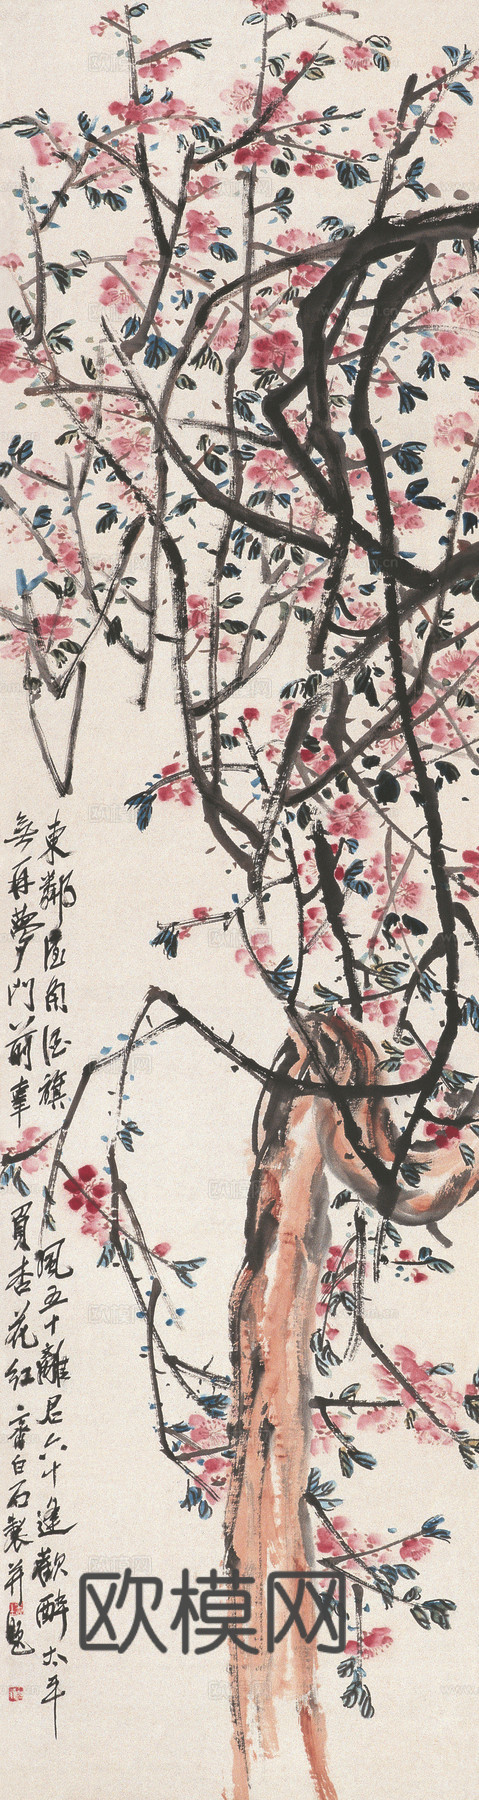 東鄰屋角酒旗風五十離君六十逢歡醉太平
無再夢門前辜負杏花紅 齊白石製并題
欧模网